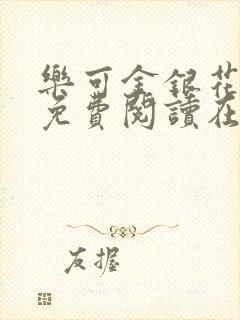 樂可金銀花
免費閱讀在
友握